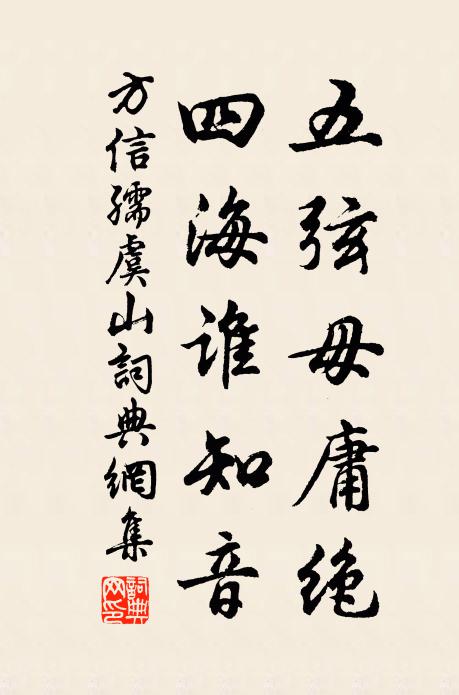 五弦毋庸绝
四海谁知音
方信孺虞山詞典網集
詞典網印